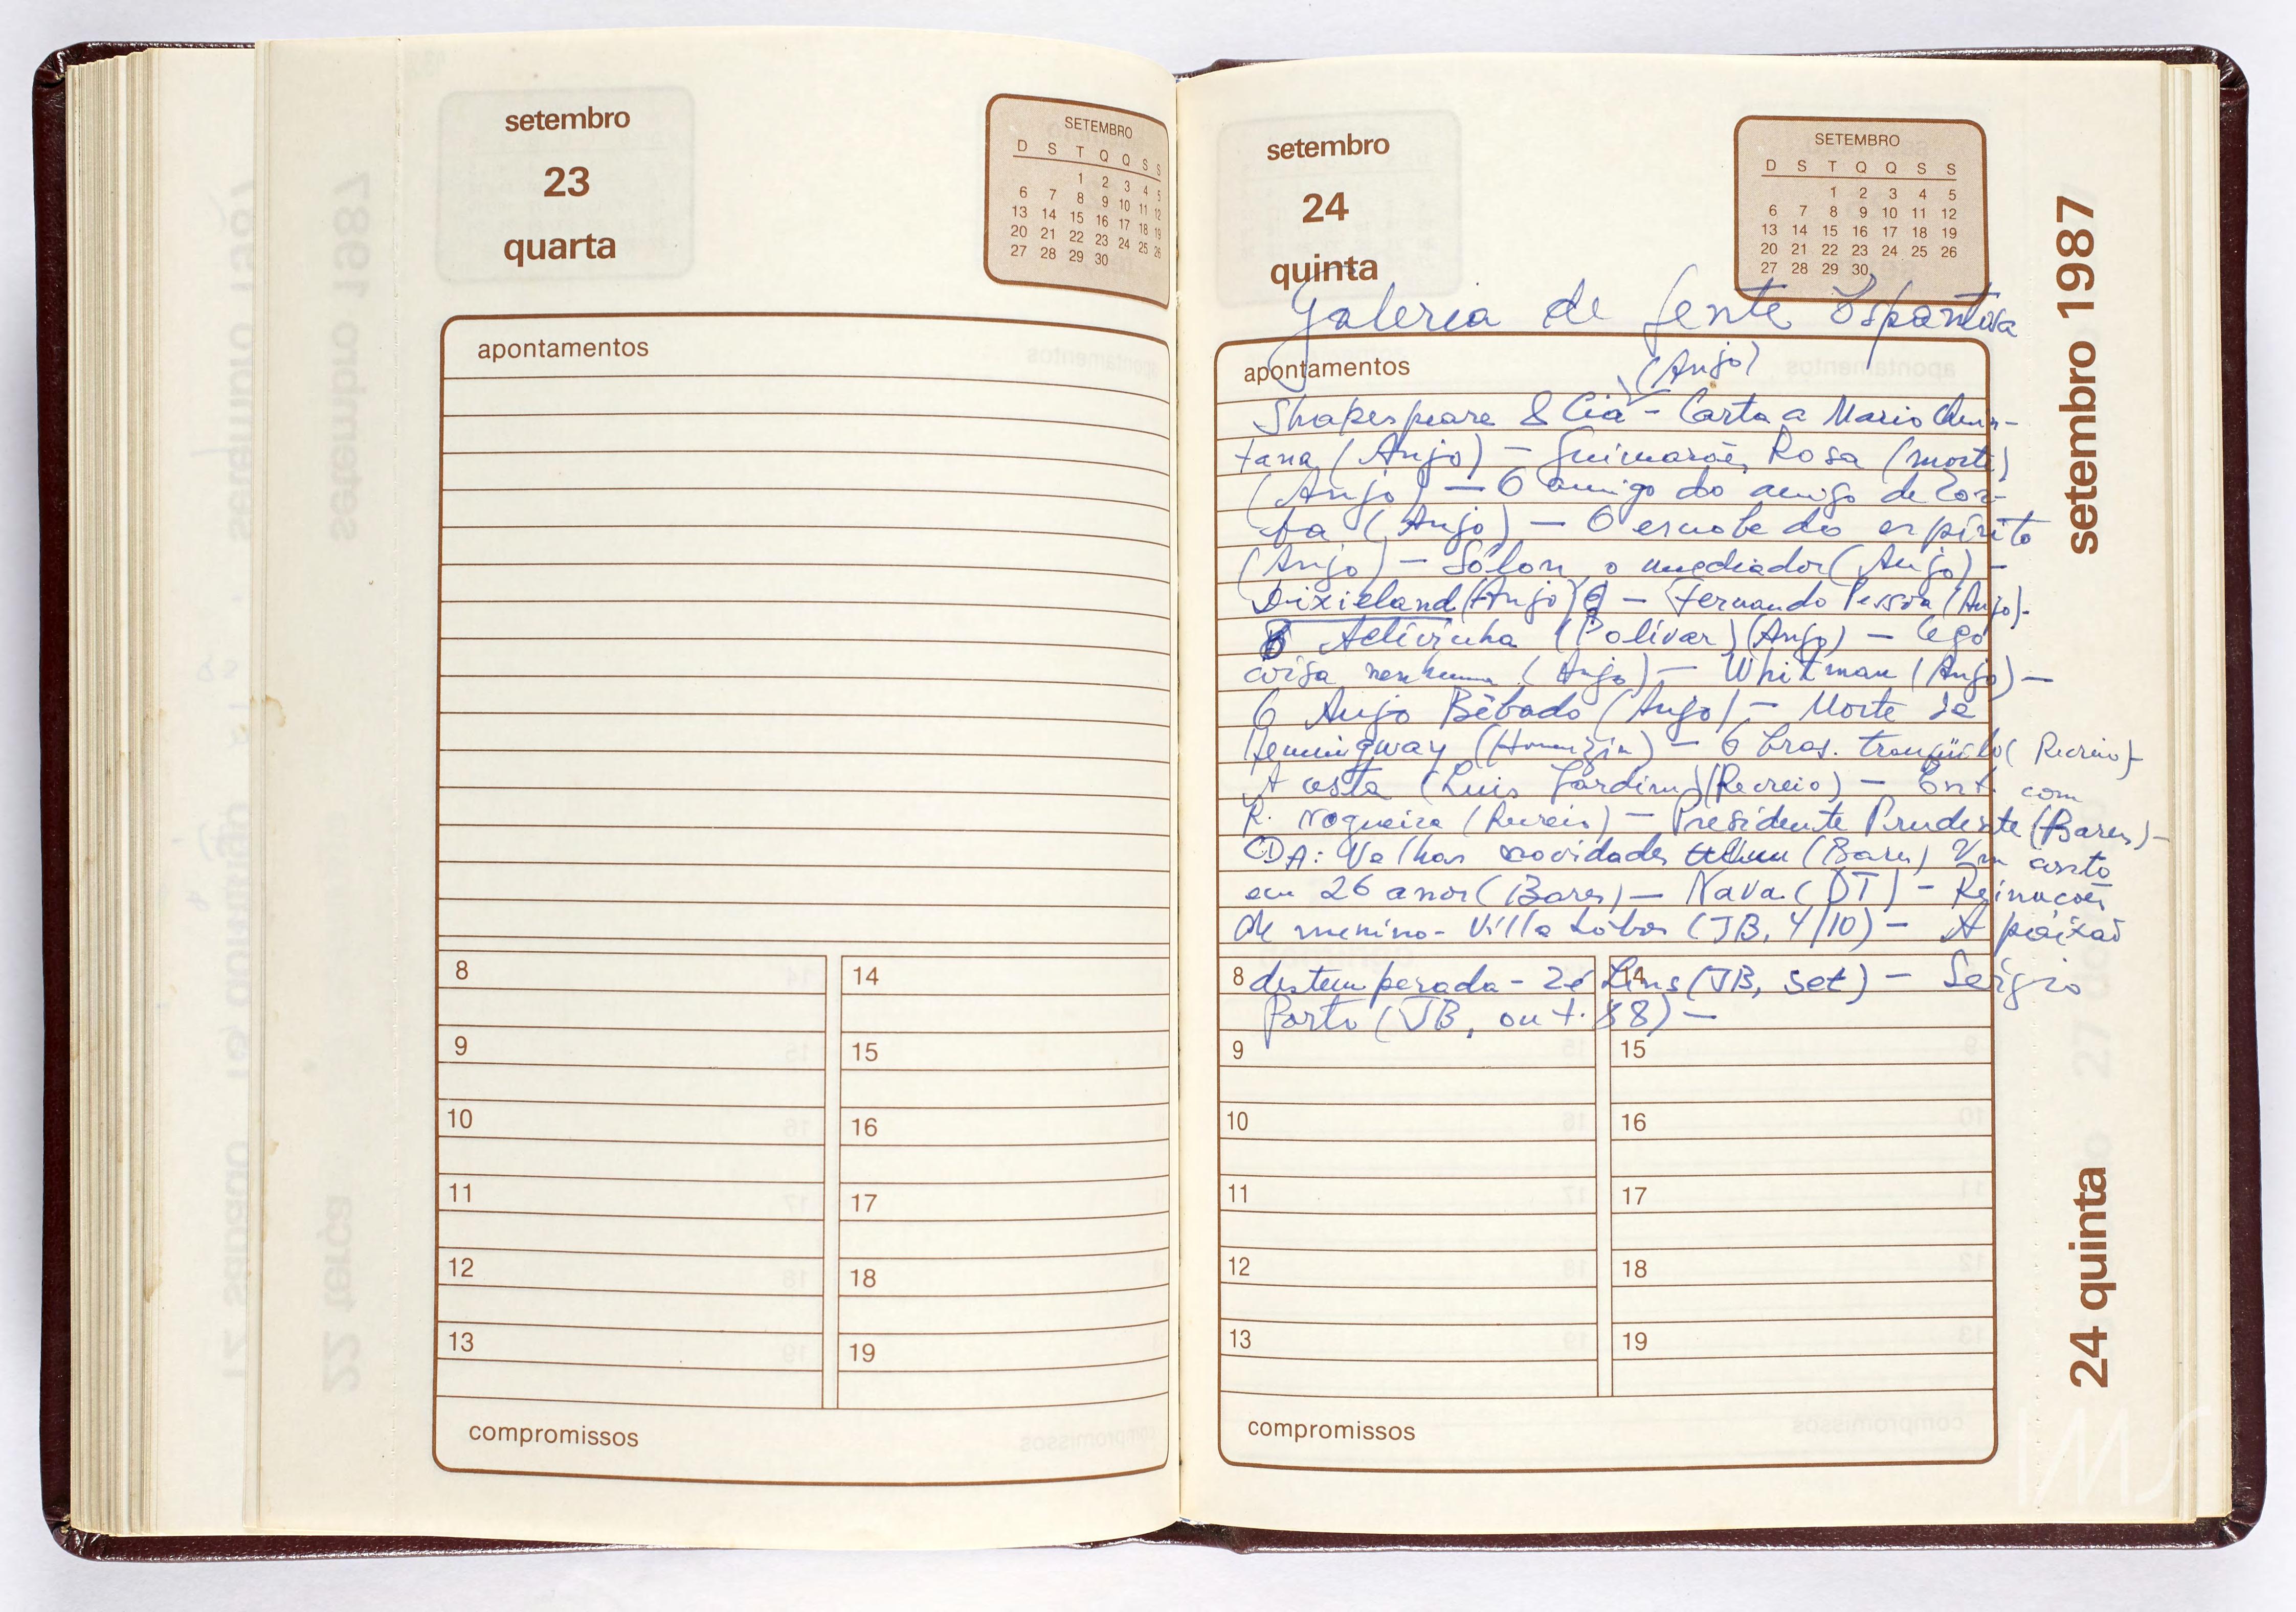 setembro
23
quarta
SETEMBRO
D S T Q Q S S
1 2 3 4 5
6 7 8 9 10 11 12
13 14 15 16 17 18 19
20 21 22 23 24 25 26
27 28 29 30
apontamentos
8 14
9 15
10 16
11 17
12 18
13 19
compromissos
setembro
24
quinta
SETEMBRO
D S T Q Q S S
1 2 3 4 5
6 7 8 9 10 11 12
13 14 15 16 17 18 19
20 21 22 23 24 25 26
27 28 29 30
setembro 1987
24 quinta
Galeria de Gente Espantosa
apontamentos
(Anjo)
Shakespeare & Cia - Carta a Mario
tana (Anjo) — Guimarães Rosa (morte)
(Anjo) — O amigo do amigo de Lor-
ca (Anjo) — O esnobe do espírito
(Anjo) — Sólon, o mediador (Anjo) -
Dixieland (Anjo) — Fernando Pessoa (Anjo)-
O Adivinha (Bolívar) (Anjo) — Cego
coisa nenhuma (Anjo) — Whitman (Anjo) —
O Anjo Bêbado (Anjo) — Morte de
Hemingway (Homenzin) — O bras. tranqüilo (Recreio)-
A costa (Luis Jardim) (Recreio) — Ent. com
R. Nogueira (Recreio) — Presidente Prudente (Bares) —
CDA: Velhas novidades (Bares) Um conto
em 26 anos (Bares) — Nava (DT) - Reinações
de menino - Villa Lôbos (JB, 4/10) — A paixão
8 destemperada - Zé Lins (JB, set) — Sérgio
14
Porto (JB, out. 88) —
9 15
10 16
11 17
12 18
13 19
compromissos
IMS